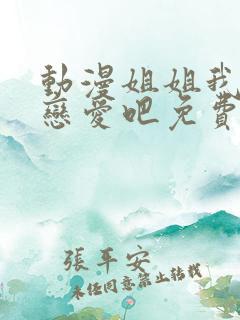 動漫姐姐我
戀愛吧免費
張平安
未经同意禁止转载